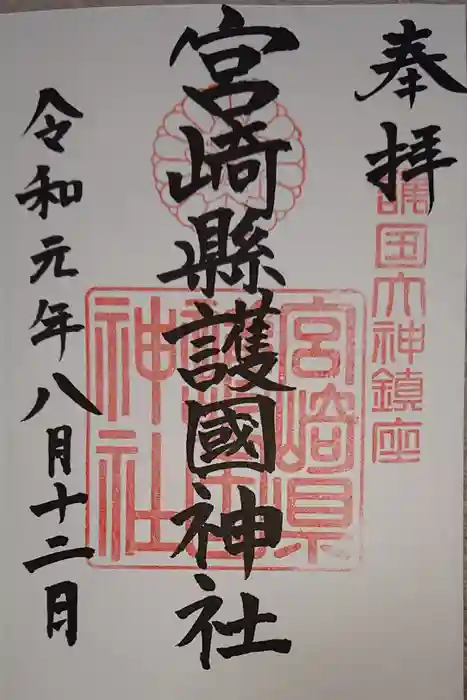 奉拝
護国大神鎮座
宮崎縣護國神社
宮崎県
護国
神社
令和元年八月十二月